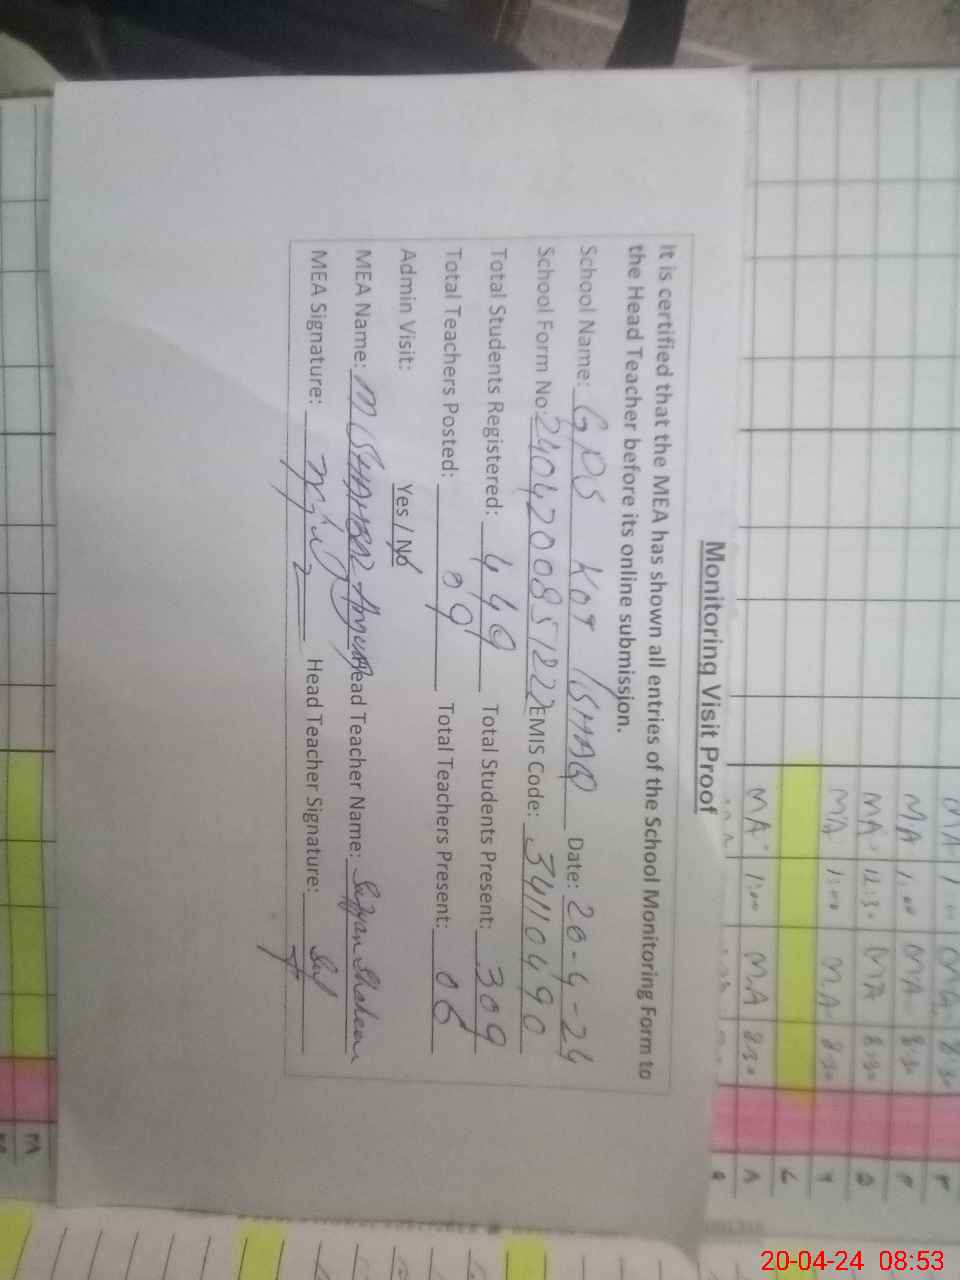 Monitoring Visit Proof
It is certified that the MEA has shown all entries of the School Monitoring Form to
the Head Teacher before its online submission.
School Name: GPS KOT ISHAQ Date: 20-4-24
School Form No: 2404200851222 EMIS Code: 34110490
Total Students Registered: 449 Total Students Present: 309
Total Teachers Posted: 09 Total Teachers Present: 06
Admin Visit: Yes / No
MEA Name: Head Teacher Name: Shaheen
MEA Signature: Head Teacher Signature:
MA 1:00 MA 8:30
MA 12:30 MA 8:30
MA 1:00 MA 8:30
MA 1:00 MA 8:30
20-04-24 08:53